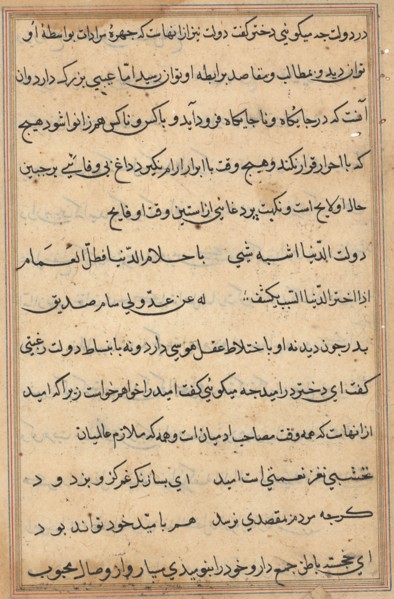 در دولت چه میگوئی دختر گفت دولت نیز از انهاست که چهرهٔ مرادات بواسطهٔ او
توان دید و بمطالب و مقاصد برابطه او توان رسید اما عیبی بزرک دارد وان
آنست که در جایگاه و ناجایکاه فرود آید و با کس و ناکس همزانو شود هیچ
که با احرار قرار نکند و هیچ وقت با ابرار ارام نگیرد داغ بی وفائی بر جبین
حال او لایح است و نکبت از استین وقت او فایح
دولت الدنیا اشبه شیٔ باحلام الدنیا فظل الغمام
اذا اختبر الدنیا لبیب تکشفت له عن عدو لی صدیق
پدر چون دید نه او باختلاط عقل هوسی دارد و نه با بساط دولت رغبتی
کفت ای دختر در امید چه میکوئی کفت امید را خواهم خواست زیرا که امید
از انهاست که همه وقت مصاحب ادمیان است و همه که ملازم عالمیان
نخشبی نغز نعمتی است امید ای بسا رنک غم کزو بزدود
کرچه مردم بمقصدی نرسد هم بامید خود تواند بود
ای خجسته باطن جمع دار و خود را بنومیدی مسپار و از وصال محبوب